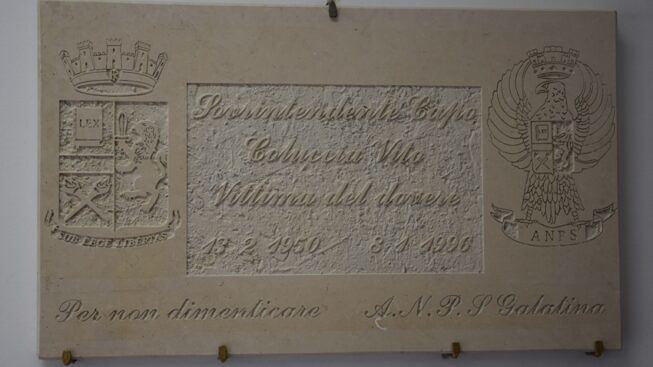 LEX
SUB LEGE LIBERTAS
Sovrintendente Capo
Coluccia Vito
Vittima del dovere
13 2 1950 8 1 1996
ANPS
Per non dimenticare A.N.P.S Galatina